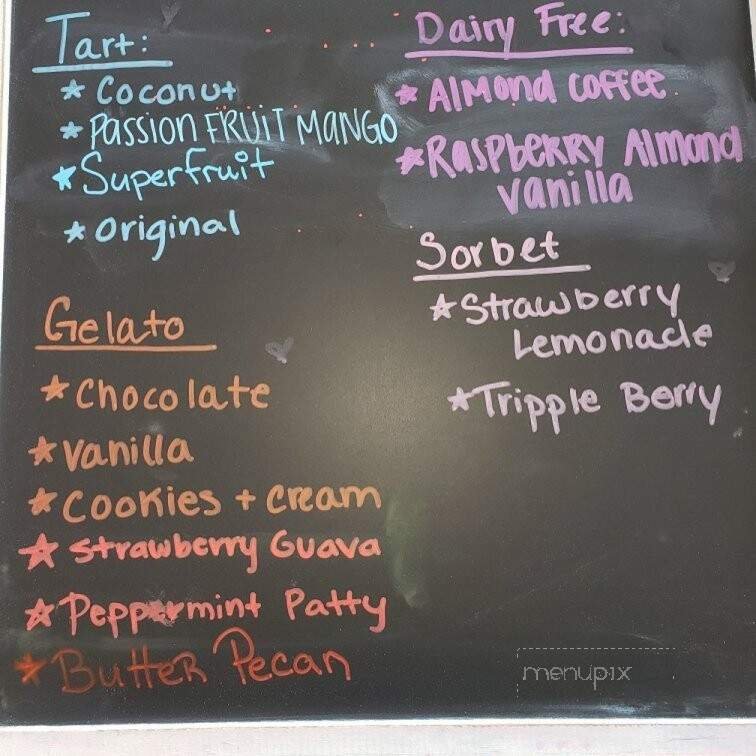 Tart:
* Coconut
* PASSION FRUIT MANGO
* Superfruit
* Original
Gelato
* Chocolate
* Vanilla
* Cookies + Cream
* Strawberry Guava
* Peppermint Patty
* Butter Pecan
Dairy Free:
* Almond Coffee
* Raspberry Almond
Vanilla
Sorbet
* Strawberry
Lemonade
* Tripple Berry
menupix